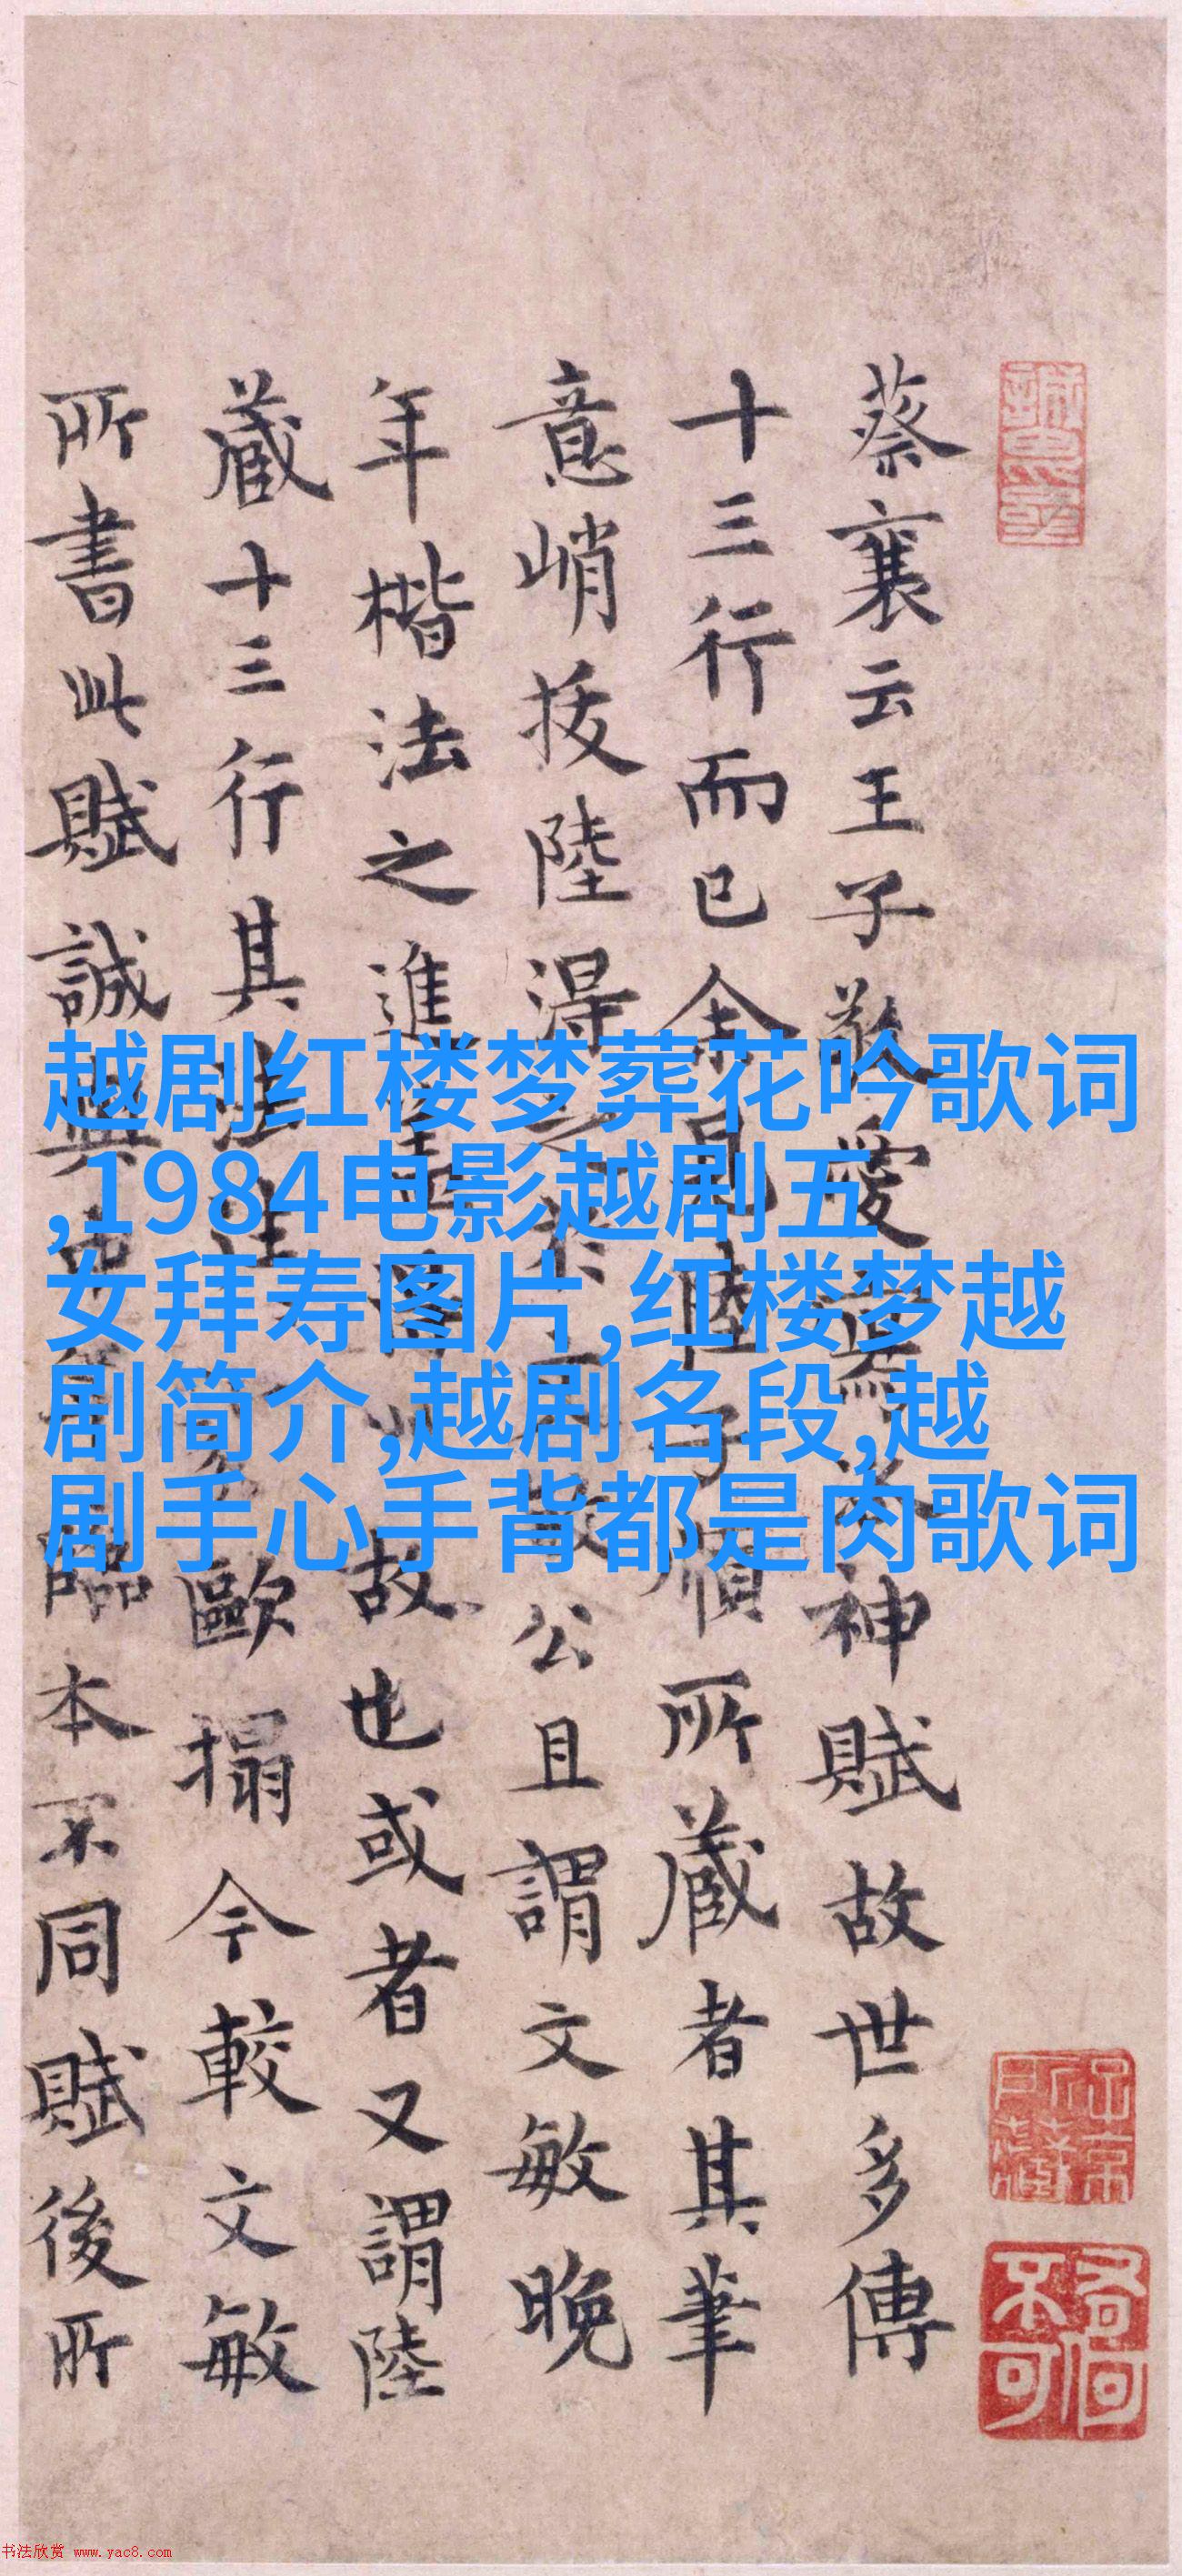 蔡襄云王子敬愛寫神賦故世多傳
十三行而已余見陸子順所藏者其筆
意峭拔陸得之公且謂文敏晚
年楷法之進故也或者又謂陸
藏十三行其法歐搨今較文敏
所書此賦誠與臨本不同賦後所
越剧红楼梦葬花吟歌词
,1984电影越剧五
女拜寿图片,红楼梦越
剧简介,越剧名段,越
剧手心手背都是肉歌词
书法欣赏 www.yac8.com